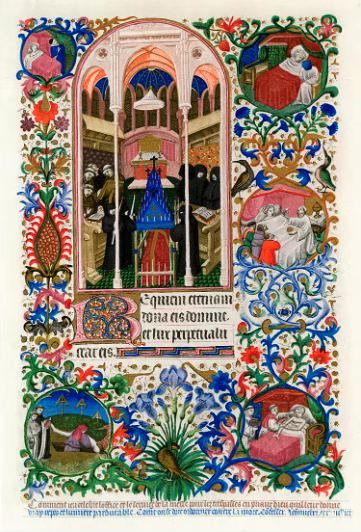 Requiem eternam
dona eis domine.
et lux perpetua lu
ceat eis.
Comment len celebre loffice et le service de la messe pour les trespasses en priant dieu quil leur donne
vray repos et lumiere pardurable. Comment